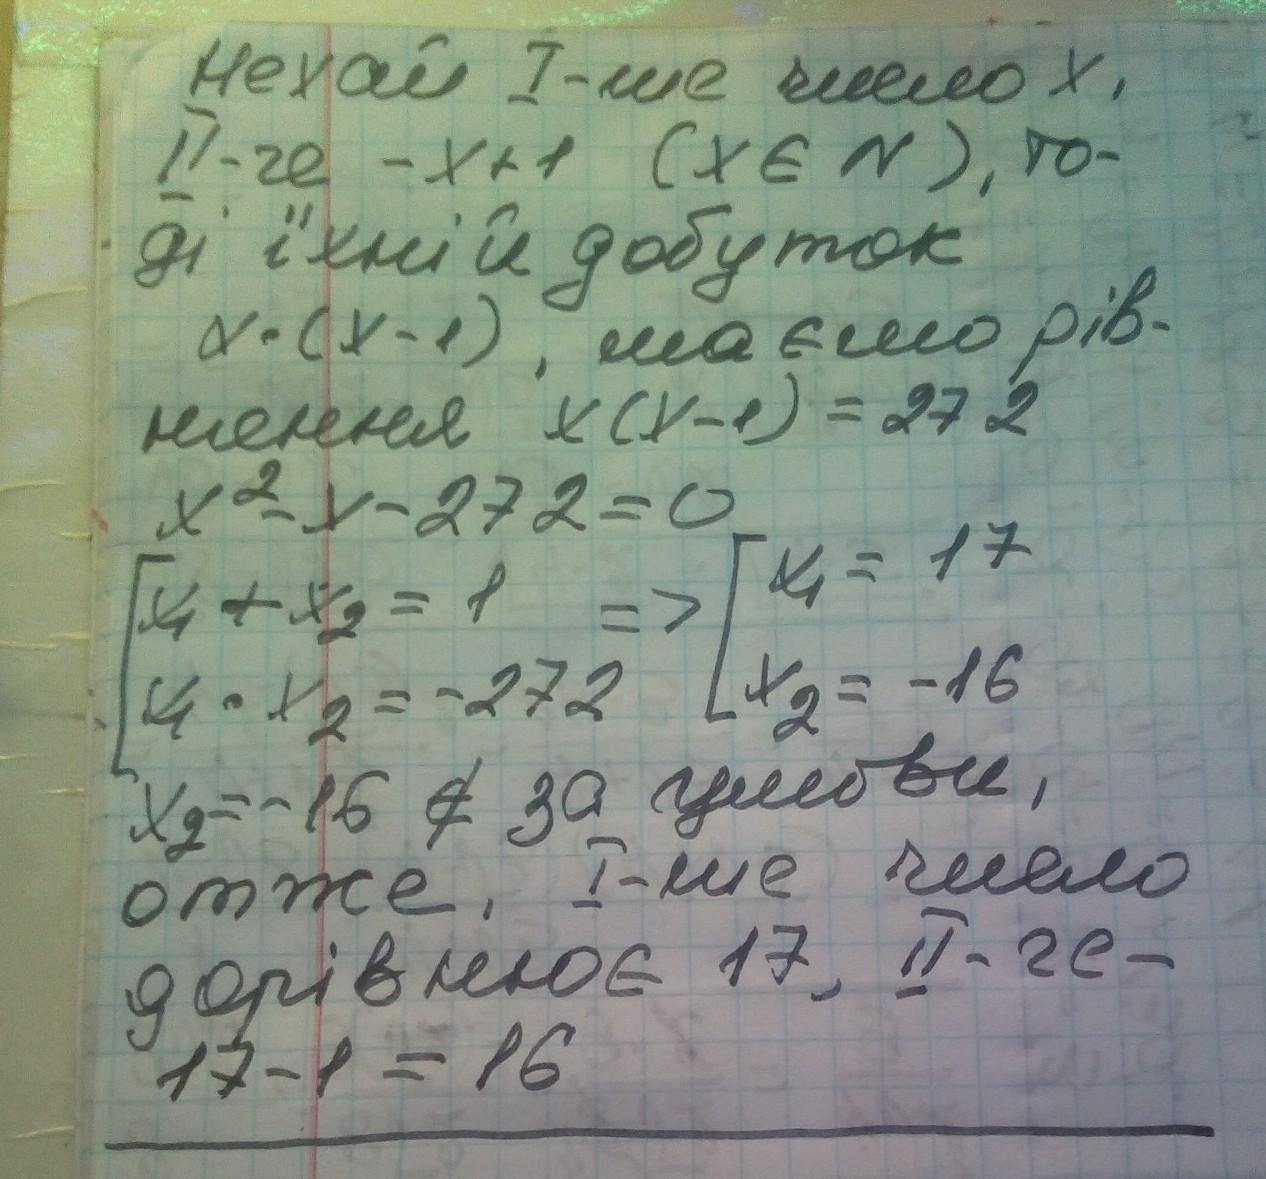 Нехай I-ше число x,
II-ге - x+1 (x ∈ N), то-
ді їхній добуток
x·(x-1), маємо рів-
няння x(x-1) = 272
x² - x - 272 = 0
[x₁ + x₂ = 1 => [x₁ = 17
[x₁ · x₂ = -272 [x₂ = -16
x₂ = -16 ∉ за умови,
отже, I-ше число
дорівнює 17, II-ге -
17-1 = 16